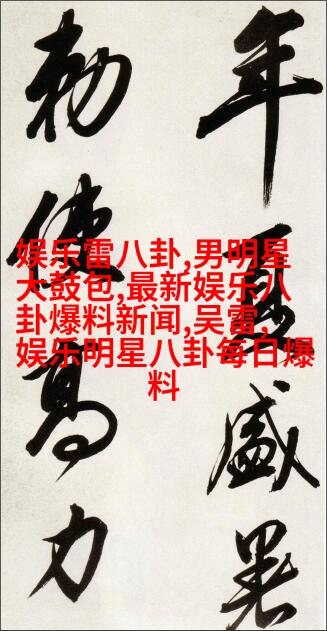 年夏盛暑
勅使高力
娱乐雷八卦,男明星
大鼓包,最新娱乐八
卦爆料新闻,吴雷,
娱乐明星八卦每日爆
料